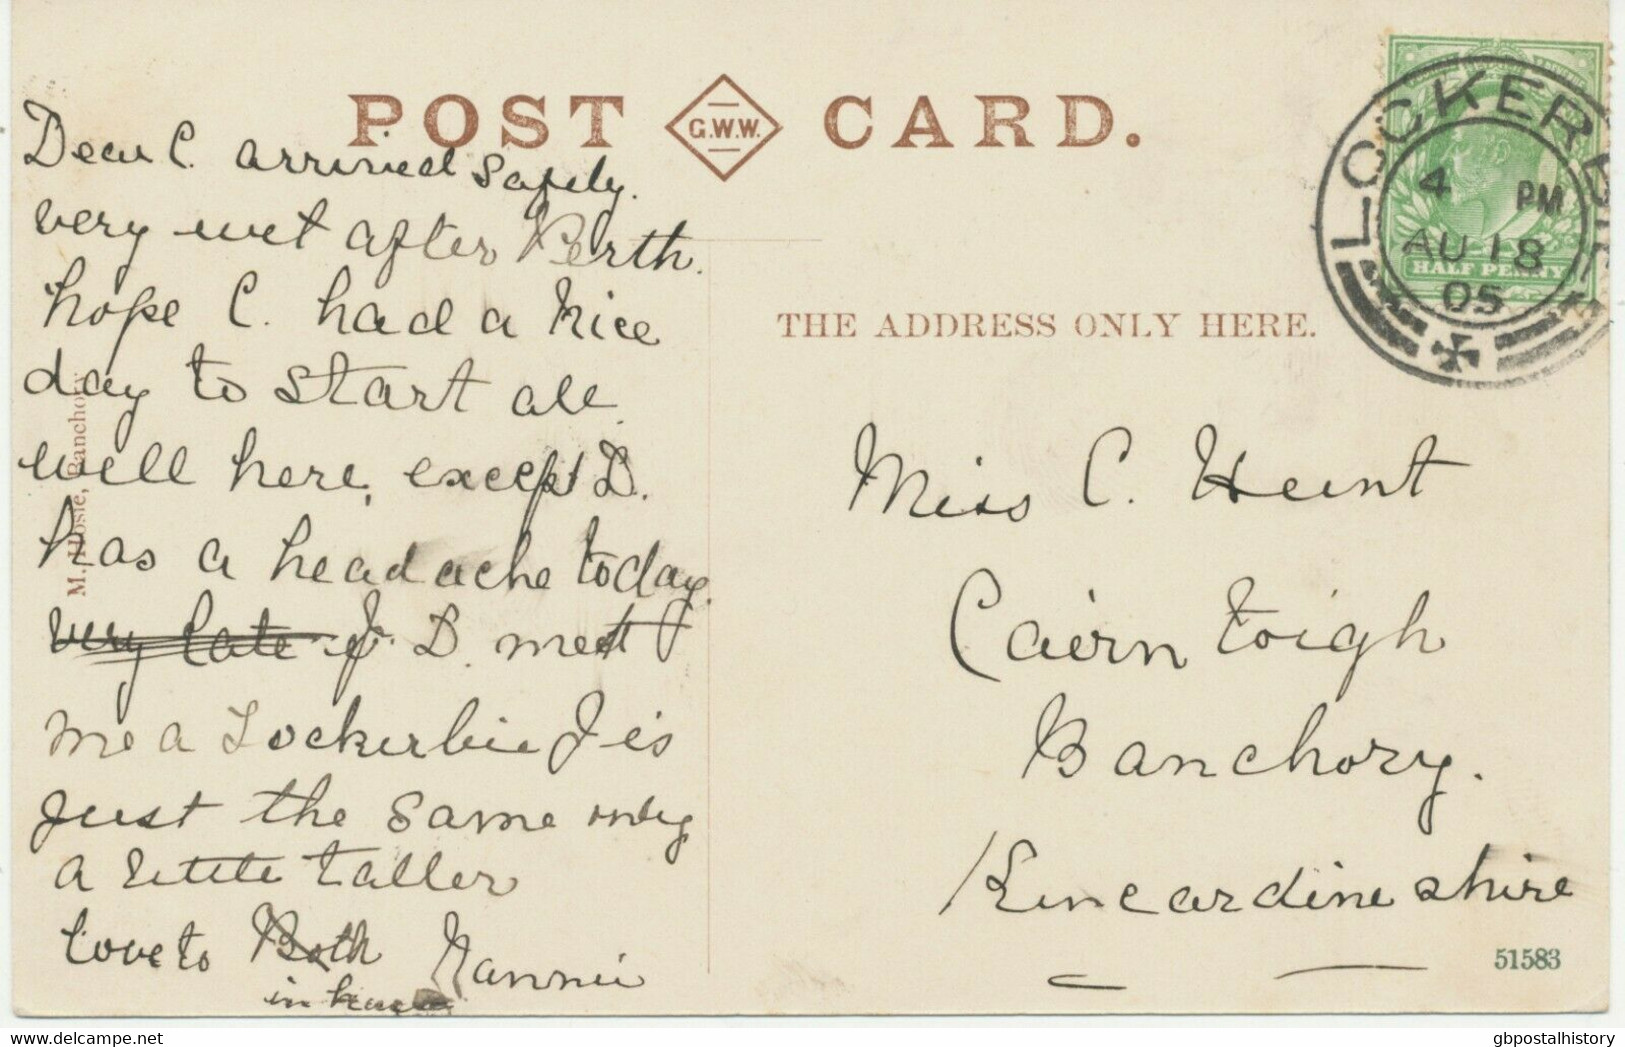 POST G.W.W. CARD.
Dear C. arrived safely.
very wet after Perth.
hope C. had a nice
day to start all
well here, except D.
has a headache today.
very late J. D. meett
me a Lockerbie J is
just the same only
a little taller
love to Both Nannie
in haste
M. Hosie, Banchory.
THE ADDRESS ONLY HERE.
LOCKERBIE
4 PM
AU 18
05
HALF PENNY
Miss C. Hunt
Cairn Toigh
Banchory.
Kincardineshire
51583
gbpostalhistory